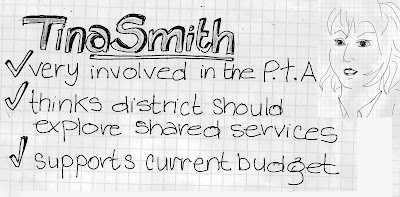 Tina Smith
✓ very involved in the P.T.A
✓ thinks district should
explore shared services
✓ supports current budget